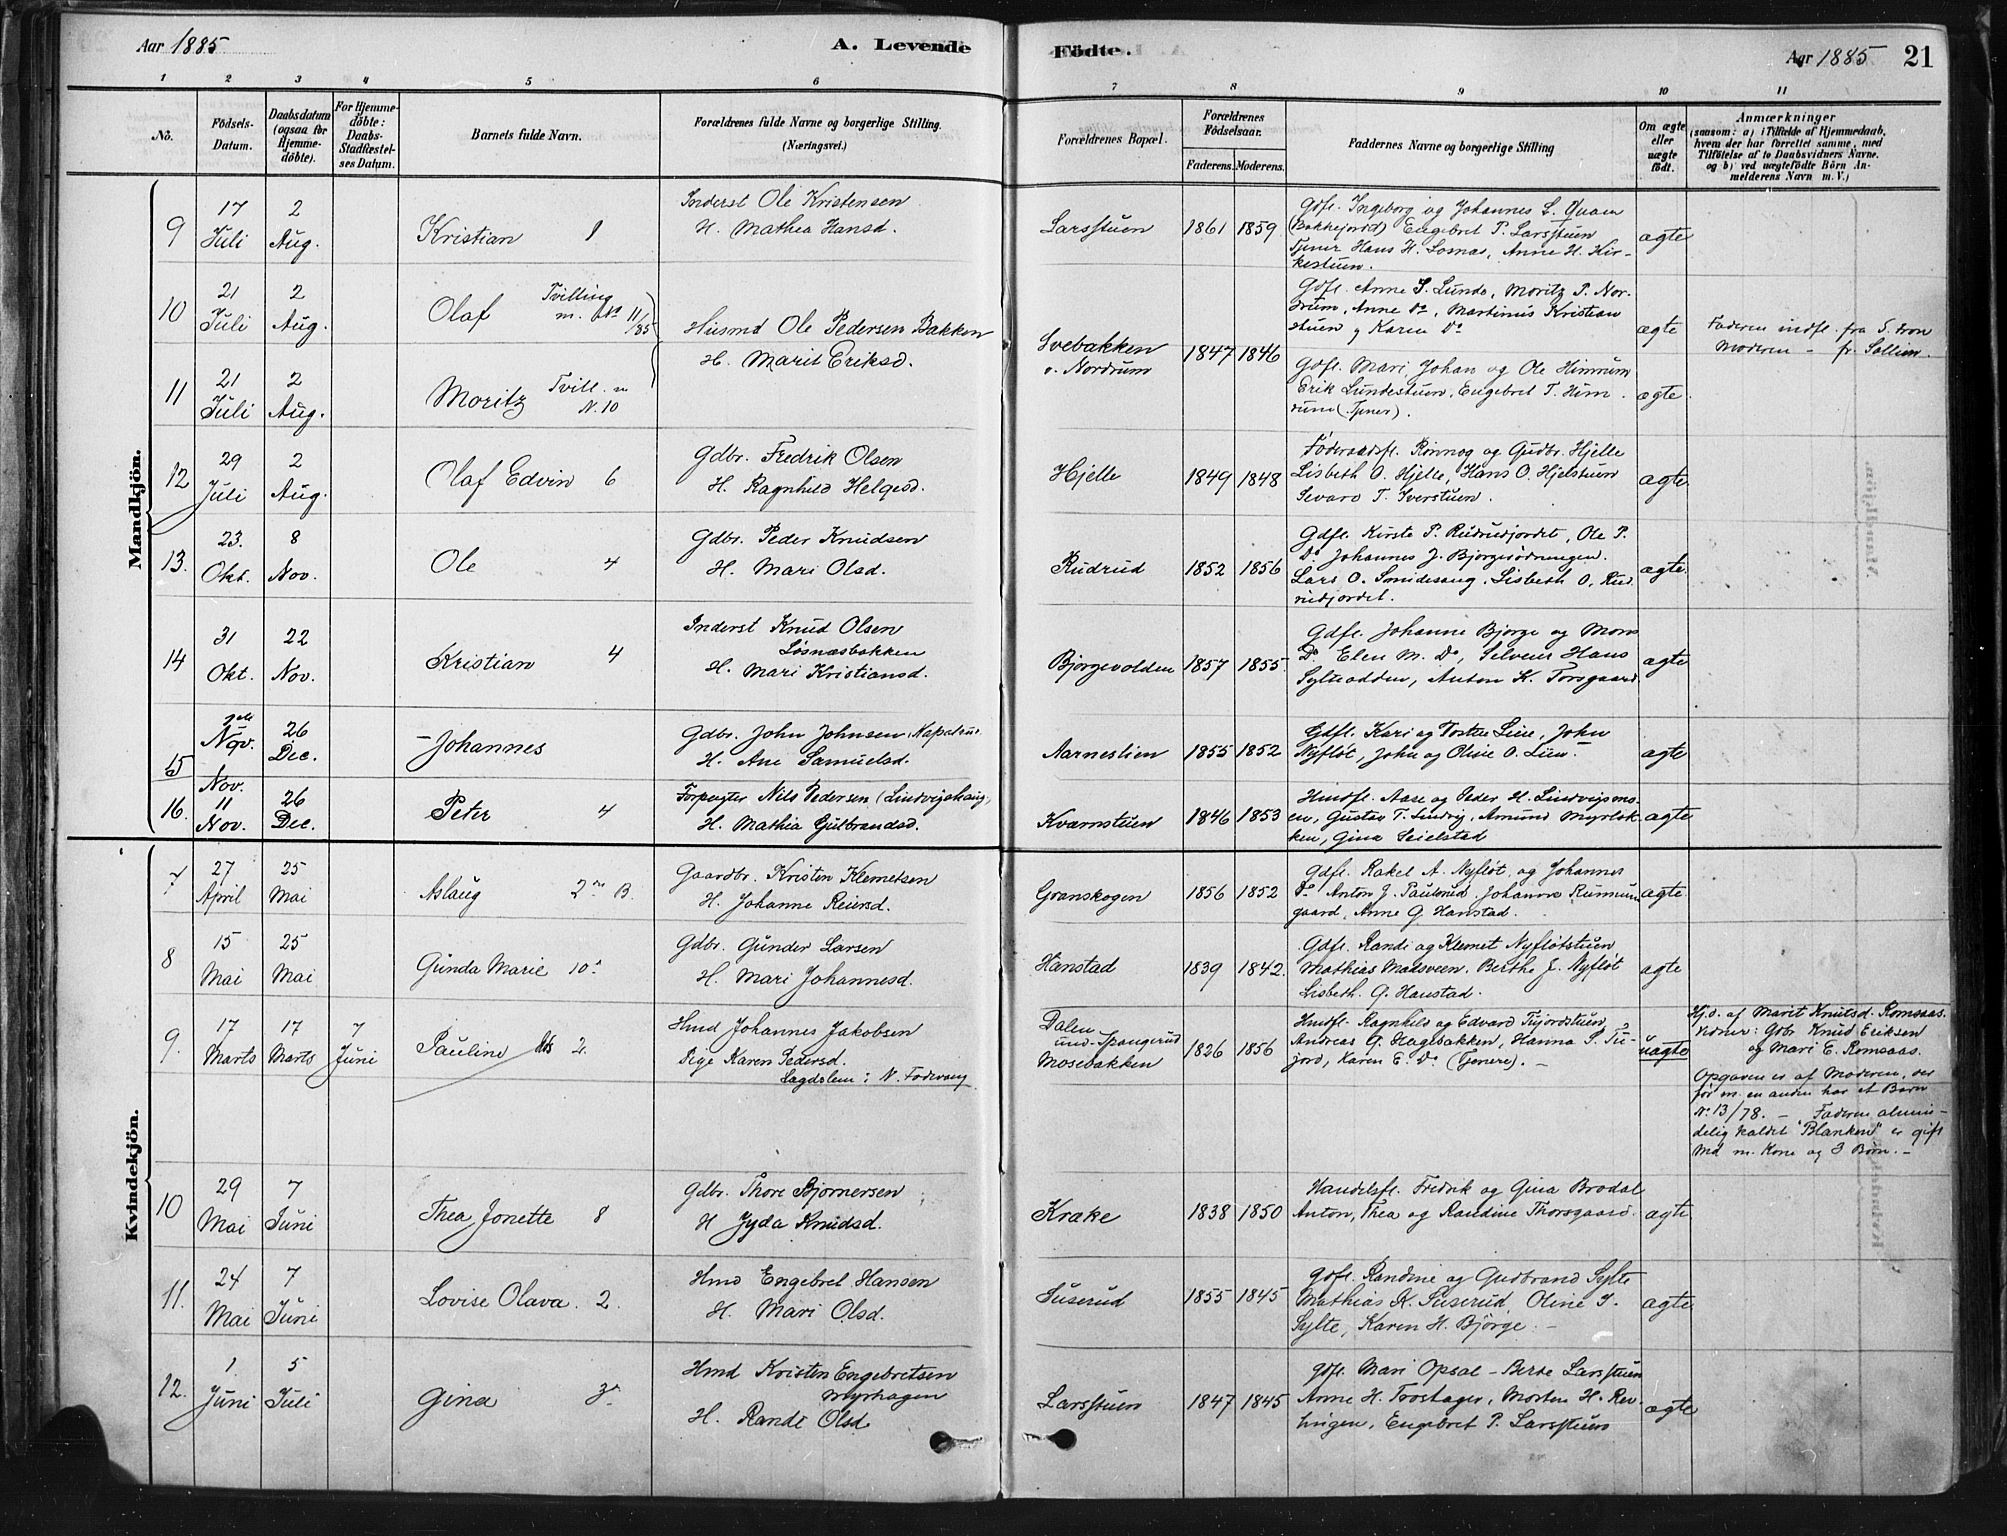 Aar 1885
A. Levende Fødte.
Aar 1885 21
1 2 3 4 5 6 7 8 9 10 11
No.
Fødsels-Datum.
Daabsdatum (ogsaa for Hjemmedøbte).
For Hjemmedøbte: Daabs-Stadfæstelses Datum.
Barnets fulde Navn.
Forældrenes fulde Navne og borgerlige Stilling. (Næringsvei.)
Forældrenes Bopæl.
Forældrenes Fødselsaar.
Faderens. Moderens.
Faddernes Navne og borgerlige Stilling
Om ægte eller uægte født.
Anmærkninger
(saasom: a) i Tilfælde af Hjemmedaab, hvem der har forrettet samme, med Tilføielse af to Daabsvidners Navne. og b) ved uægtefødte Børn Anmelderens Navn m. V.)
Mandkjön.
9 17 Juli 2 Aug. Kristian 1
Inderst Ole Kristensen
H. Mathea Hansd.
Larsstuen 1861 1859
Gdfl. Ingeborg og Johannes L. Quam
(Bakkejord) Engebret P. Larsstuen
Tjener Hans H. Lomas, Anne H. Kirkestuen.
ægte
10 21 Juli 2 Aug. Olaf Tvilling m. No 11/85
Husmd Ole Pedersen Bakken
H. Marit Eriksd.
Svebakken u. Nordrum 1847 1846
Gdfl. Anne S. Lunde, Moritz P. Nordrum, Anne Do, Martinus Kristianstuen, Karen Do
ægte
Faderen indfl. fra S. Fron
Moderen – fr. Sollien.
11 21 Juli 2 Aug. Moritz Tvill. m N. 10
Gdfl. Mari, Johan og Ole Himrum
Erik Lundestuen, Engebret T. Himrum (Tjener).
ægte
12 29 Juli 2 Aug. Olaf Edvin 6
Gdbr. Fredrik Olsen
H. Ragnhild Helgesd.
Hjelle 1849 1848
Føderaadsfl. Rønnog og Gudbr. Hjelle
Lisbeth O. Hjelle, Hans O. Hjelstuen
Sevard T. Iverstuen.
ægte
13. 23. Okt. 8 Nov. Ole 4
Gdbr. Peder Knudsen
H. Mari Olsd.
Rudrud 1852 1856
Gdfl. Kirste P. Rudrudjordet, Ole P.
Do Johannes J. Bjørgerødningen.
Lars O. Smidesang, Lisbeth O. Rudrudjordet.
ægte.
14 31 Okt. 22 Nov. Kristian 4
Inderst Knud Olsen
Løsnæsbakken
H. Mari Kristiansd.
Bjørgevolden 1857 1855
Gdfl. Johanne Bjørge og Mons
Do. Elen M. Do, Selveier Hans
Sylteodden, Anton K. Torsgaard.
ægte
15 Nov. 26 Dec. Johannes
Gdbr. John Johnsen
H. Ane Samuelsd.
Aarneslien 1855 1852
Gdfl. Kari og Torsten Lien, John
Nyfløt, John og Oline O. Lien.
ægte
16. Nov. 11 Nov. 26 Dec. Peter 4
Forpagter Nils Pedersen (Lindvigshaug,
H. Mathea Gulbrandsd.
Kværnstuen 1846 1853
Hmdfl. Aase og Peder H. Lindvigsmoen, Gustav T. Lindvig, Amund Myrløkken, Gina Seielstad
ægte
Kvindekjön.
7 27 April 25 Mai Aslaug 2den B.
Gaardbr. Kristen Klemetsen
H. Johanne Reiersd.
Granskogen 1856 1852
Gdfl. Rakel A. Nyfløt, og Johannes
Do Anton J. Paulsrud, Johanne Rummungaard, Anne G. Hanstad.
ægte.
8 15 Mai 25 Mai Gunda Marie 10.
Gdbr. Gunder Larsen
H. Mari Johannesd.
Hanstad 1839 1842.
Gdfl. Randi og Klemet Nyfløtstuen
Mathias Madsveen, Berthe J. Nyfløt
Lisbeth G. Hanstad.
ægte
9. 17 Marts 17 Marts 7 Juni Pauline 2.
Hmd Johannes Jakobsen
Pige Karen Pedersd.
Lagdslem i N. Fodvang
Dalen und. Spangerud
Mosebakken
1826 1856
Hmdfl. Ragnhild og Edvard Trijordstuen,
Andreas G. Hagebakken, Hanna P. Trijord, Karen E. Do (Tjenere). –
uægte
Hj.d. af Marit Knutsd. Romsaas.
Vidner: Gdbr Knud Eriksen
og Mari E. Romsaas.
Opgaven er af Moderen, der
før m. en anden har et Barn
No 13/78. – Faderen almindelig kaldet "Blanken" er gift
Md m. Kone og 3 Børn. –
10 29 Mai 7 Juni Thea Jonette 8
Gdbr. Thore Bjørnersen
H Jyda Knudsd.
Krake 1838 1850
Handelsfl. Fredrik og Gina Brodal
Anton, Thea og Randine Thorsgaard.
ægte
11. 24 Mai 7 Juni Lovise Olava. 2.
Hmd Engebret Hansen
H. Mari Olsd.
Suserud 1855 1845
Gdfl. Randine og Gudbrand Sylte
Mathias K. Suserud, Oline J.
Sylte, Karen H. Bjørge. –
ægte
12. 1 Juni 5 Juli Gina 3.
Hmd Kristen Engebretsen
Myrhagen
H. Randi Olsd.
Larsstuen 1847 1845
Gdfl. Mari Opsal – Berte Larsstuen
Anne H. Trostager, Morten H. Revlingen, Engebret P. Larsstuen
ægte